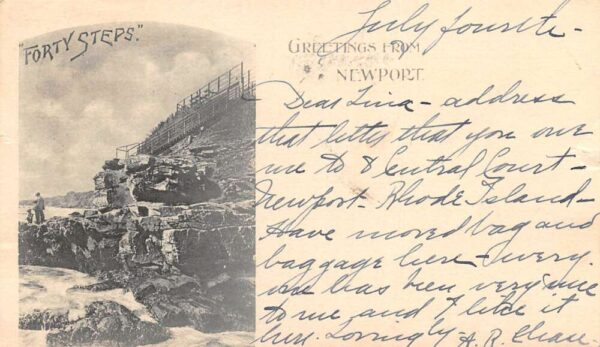 "FORTY STEPS."
July fourth-
GREETINGS FROM
NEWPORT.
Dear Lina - address
that letter that you owe
me to 8 Central Court -
Newport - Rhode Island -
Have moved bag and
baggage here - every
one has been very nice
to me and I like it
here. Lovingly A. R. Chase.